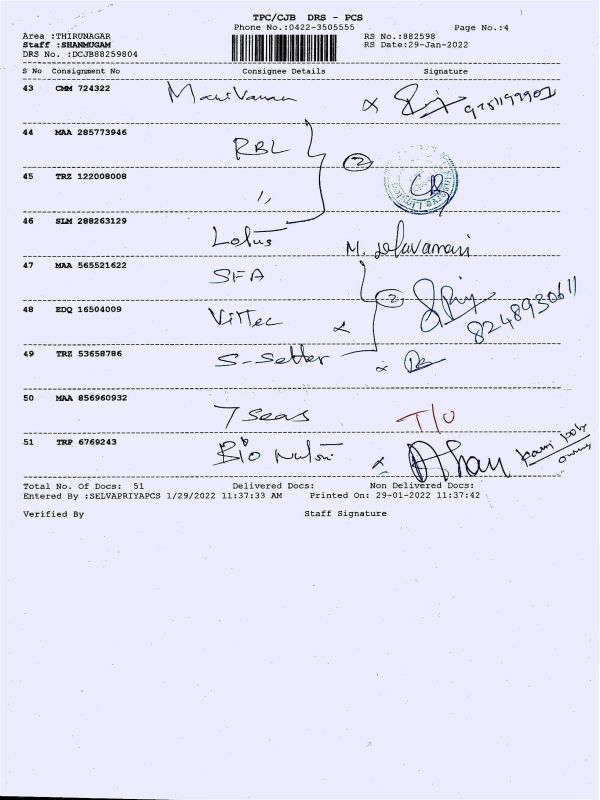 TPC/CJB DRS - PCS
Phone No.:0422-3505555 Page No.:4
Area :THIRUNAGAR RS No.:882598
Staff :SHANMUGAM RS Date:29-Jan-2022
DRS No. :DCJB88259804
S No Consignment No Consignee Details Signature
43 CMM 724322 Manivanan
44 MAA 285773946 RBL 2
45 TRZ 122008008 〃
46 SLM 288263129 Lotus
47 MAA 565521622 SFA
48 EDQ 16504009 Vittec 2 8248930611
49 TRZ 53658786 S-Setter
50 MAA 856960932 7 Seas T/O
51 TRP 6769243 Bio
Total No. Of Docs: 51 Delivered Docs: Non Delivered Docs:
Entered By :SELVAPRIYAPCS 1/29/2022 11:37:33 AM Printed On: 29-01-2022 11:37:42
Verified By Staff Signature